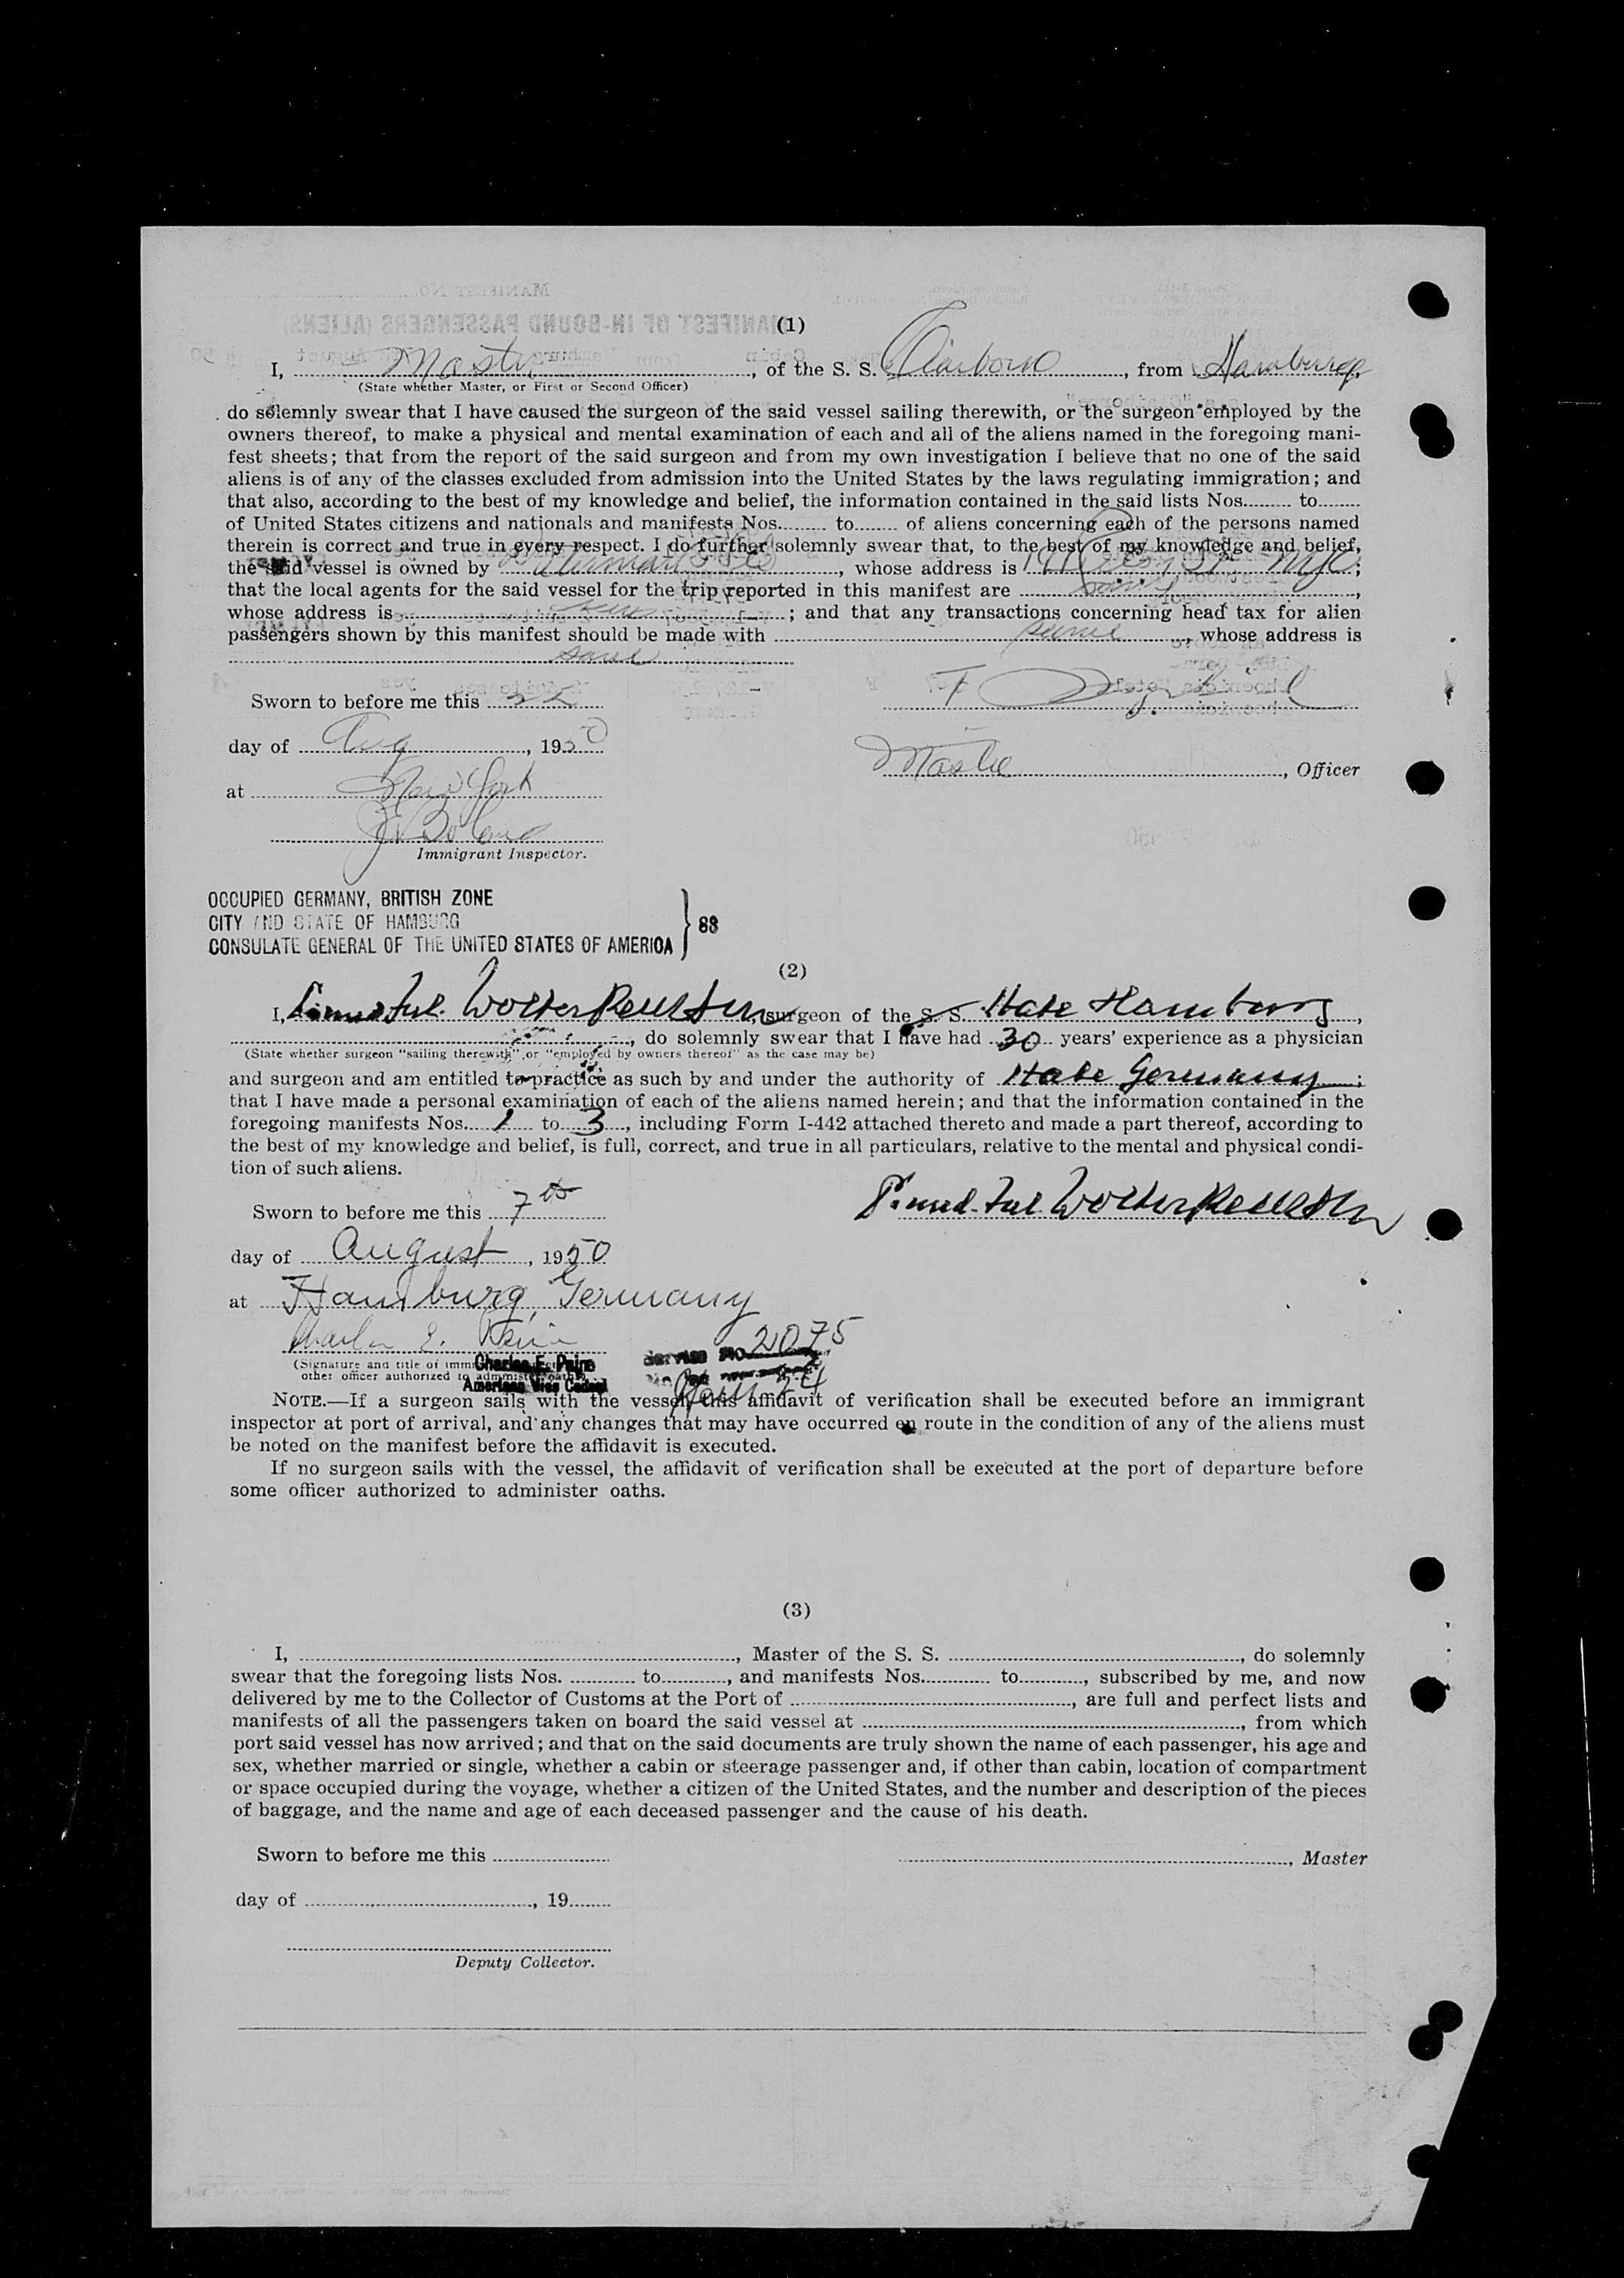 (1)
I, Master, of the S. S. Clairborne, from Hamburg,
(State whether Master, or First or Second Officer)
do solemnly swear that I have caused the surgeon of the said vessel sailing therewith, or the surgeon employed by the
owners thereof, to make a physical and mental examination of each and all of the aliens named in the foregoing mani-
fest sheets; that from the report of the said surgeon and from my own investigation I believe that no one of the said
aliens is of any of the classes excluded from admission into the United States by the laws regulating immigration; and
that also, according to the best of my knowledge and belief, the information contained in the said lists Nos. to
of United States citizens and nationals and manifests Nos. to of aliens concerning each of the persons named
therein is correct and true in every respect. I do further solemnly swear that, to the best of my knowledge and belief,
the said vessel is owned by Waterman, whose address is 19 St. NYC;
that the local agents for the said vessel for the trip reported in this manifest are same,
whose address is same; and that any transactions concerning head tax for alien
passengers shown by this manifest should be made with same, whose address is
same
Sworn to before me this 22
day of Aug, 1950
Master, Officer
at New York
Immigrant Inspector.
OCCUPIED GERMANY, BRITISH ZONE
CITY AND STATE OF HAMBURG
CONSULATE GENERAL OF THE UNITED STATES OF AMERICA
} SS
(2)
I, surgeon of the S. S. State Hamburg,
, do solemnly swear that I have had 30 years' experience as a physician
(State whether surgeon "sailing therewith" or "employed by owners thereof" as the case may be)
and surgeon and am entitled to practice as such by and under the authority of State Germany;
that I have made a personal examination of each of the aliens named herein; and that the information contained in the
foregoing manifests Nos. 1 to 3, including Form I-442 attached thereto and made a part thereof, according to
the best of my knowledge and belief, is full, correct, and true in all particulars, relative to the mental and physical condi-
tion of such aliens.
Sworn to before me this 7th
day of August, 1950
at Hamburg, Germany
Charles E. Paine
2075
(Signature and title of imm
Charles E. Paine
Service No.
other officer authorized to administer oaths)
American Vice Consul
NOTE.—If a surgeon sails with the vessel, this affidavit of verification shall be executed before an immigrant
inspector at port of arrival, and any changes that may have occurred en route in the condition of any of the aliens must
be noted on the manifest before the affidavit is executed.
If no surgeon sails with the vessel, the affidavit of verification shall be executed at the port of departure before
some officer authorized to administer oaths.
(3)
I, , Master of the S. S. , do solemnly
swear that the foregoing lists Nos. to , and manifests Nos. to , subscribed by me, and now
delivered by me to the Collector of Customs at the Port of , are full and perfect lists and
manifests of all the passengers taken on board the said vessel at , from which
port said vessel has now arrived; and that on the said documents are truly shown the name of each passenger, his age and
sex, whether married or single, whether a cabin or steerage passenger and, if other than cabin, location of compartment
or space occupied during the voyage, whether a citizen of the United States, and the number and description of the pieces
of baggage, and the name and age of each deceased passenger and the cause of his death.
Sworn to before me this
, Master
day of , 19
Deputy Collector.